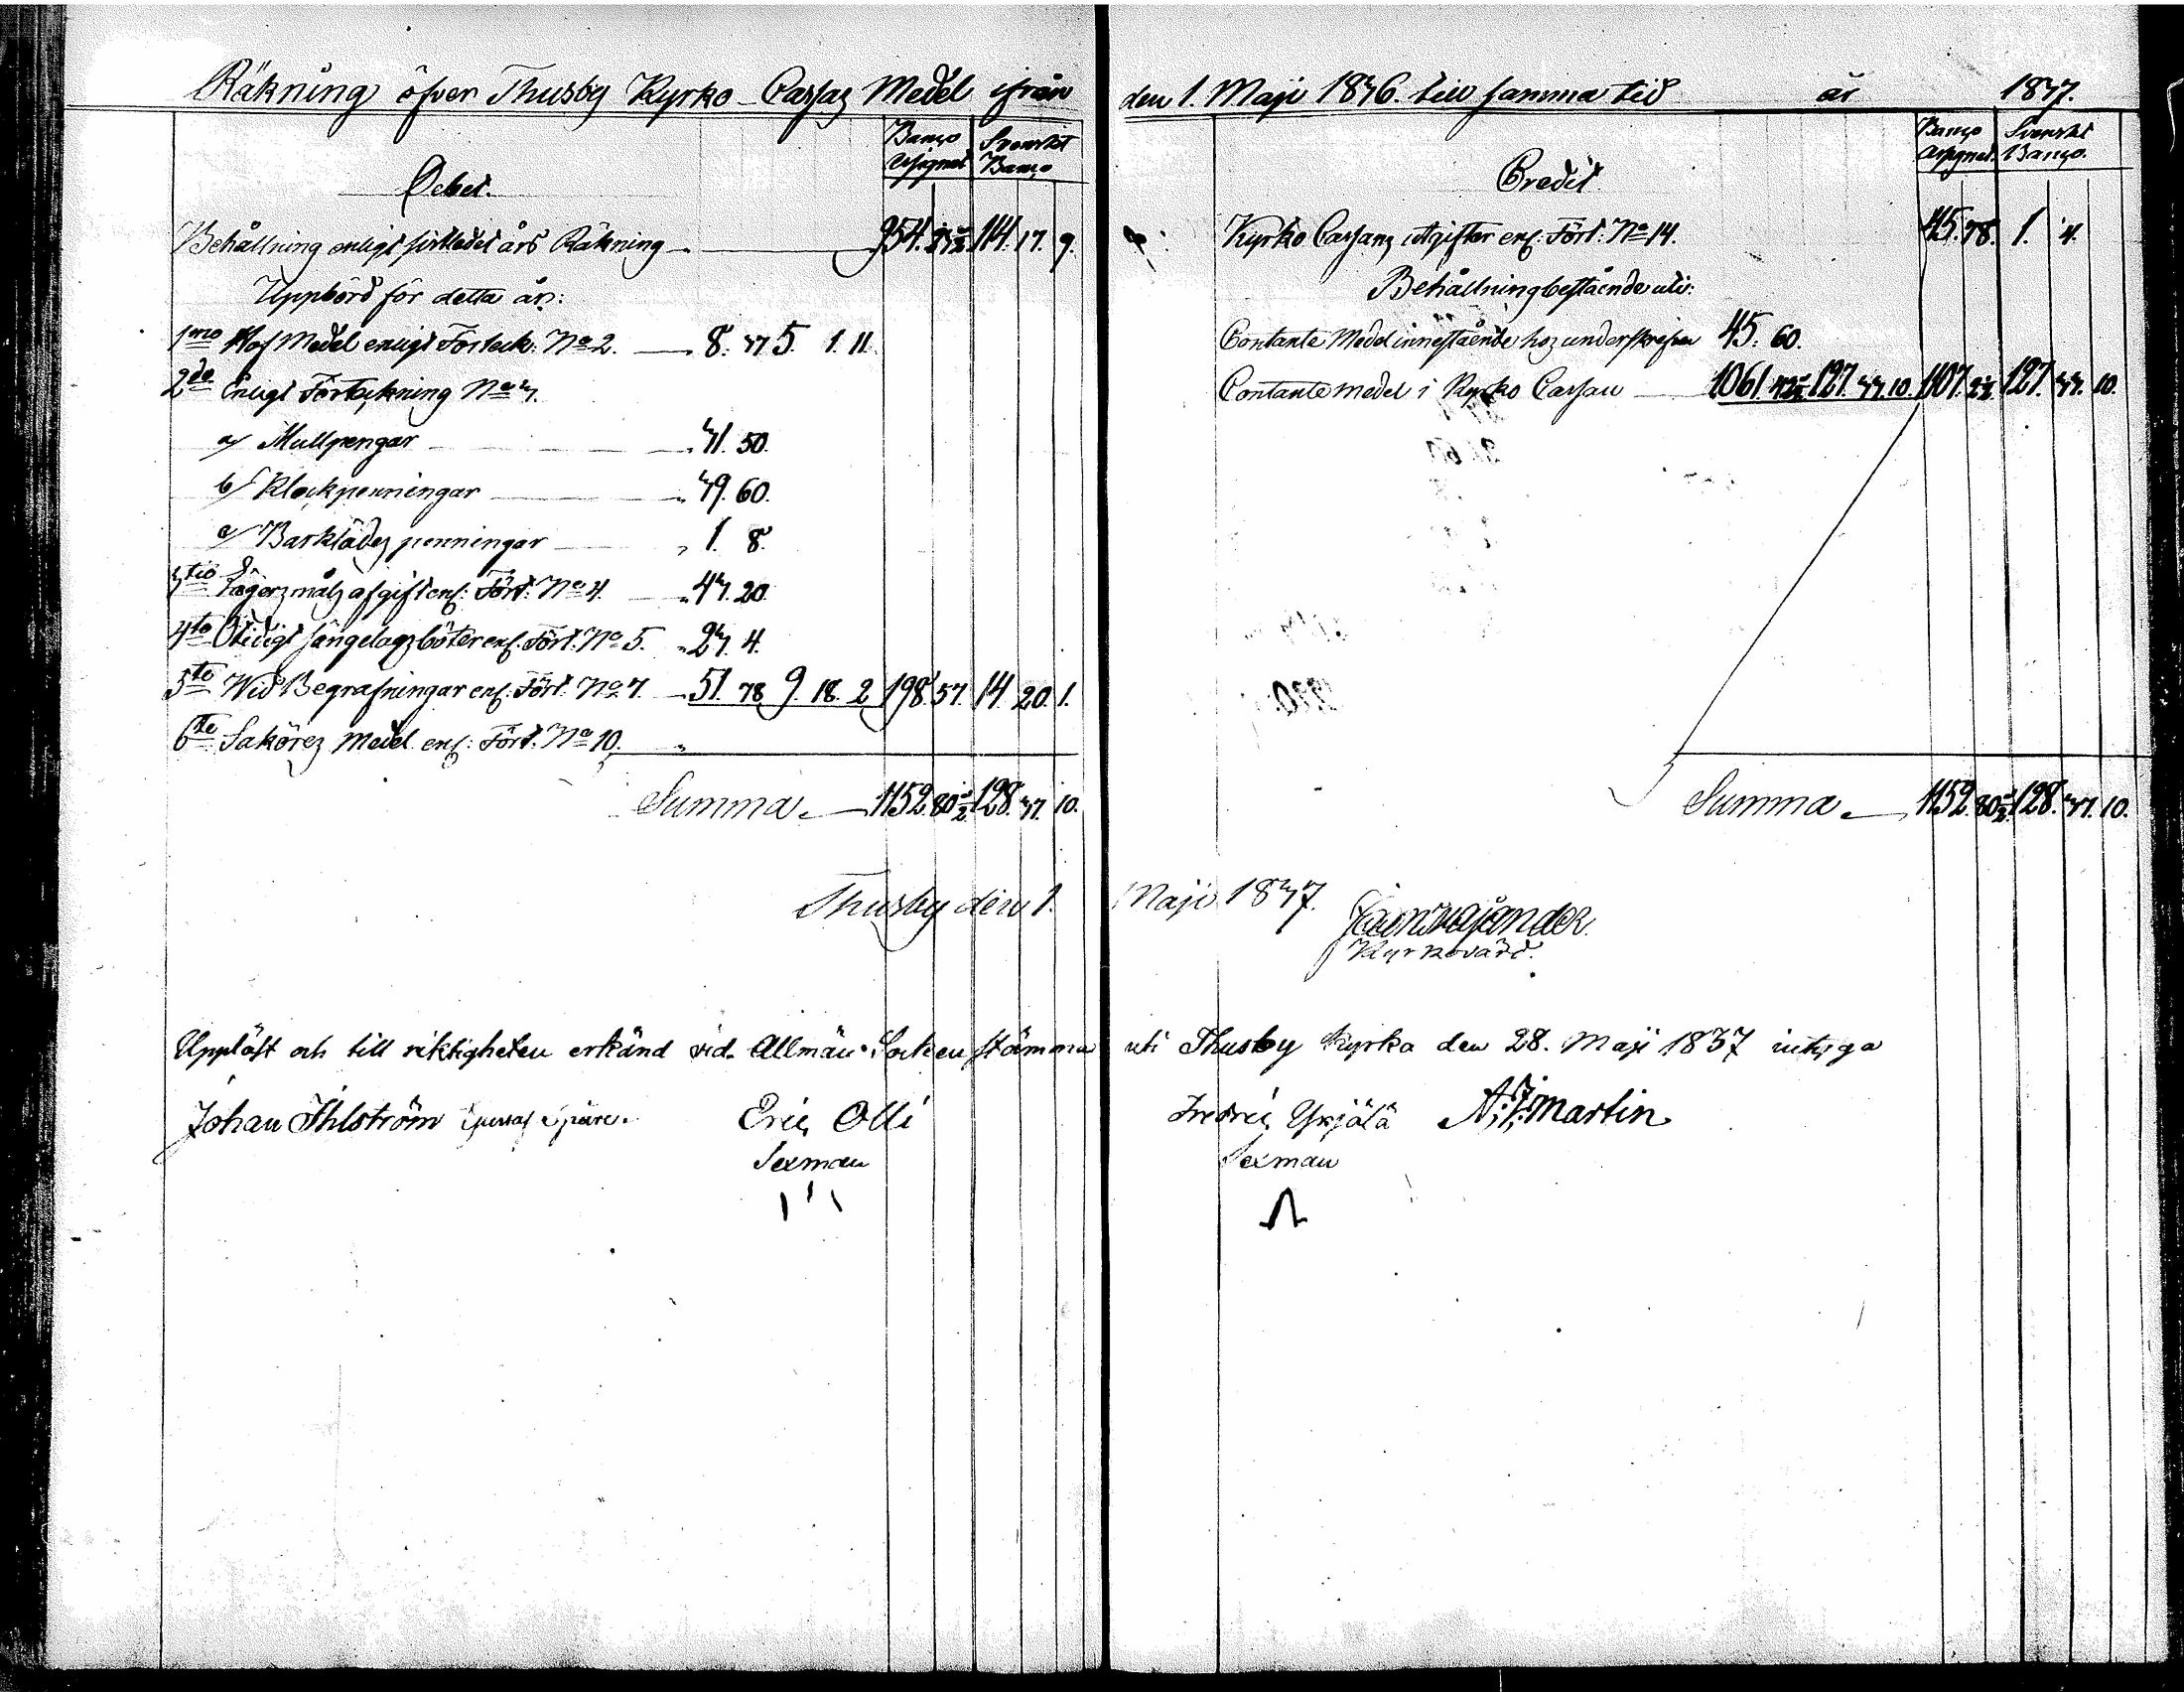 Räkning öfver Thusby Kyrko-Cassas Medel ifrån den 1. Maji 1836. till samma tid år 1837.
Banco Assignat. Svenskt Banco
Banco Assignat. Svenskt Banco.
Debet.
Credit
Behållning enligt sistledet års Räkning 954. 23½ 114. 17. 9.
Kyrko Cassans utgifter enl: Fört: No 14. 45. 78. 1. 4.
Uppbörd för detta år:
Behållning bestående utir:
1mo Håf Medel enligt Förteck: No 2. 8. 37 5. 1. 11.
Contante Medel innestående hos underskrifven 45. 60.
2do Enligt Förteckning No 3.
Contante medel i Kyrko Cassan 1061. 42½ 127. 33. 10. 1107. 2½ 127. 33. 10.
a/ Mullpengar 31. 50.
b/ Klockpenningar 39. 60.
c/ Barklädes penningar 1. 8.
3tio Lägersmåls afgift enl: Fört: No 4. 43. 20.
4to Otidigt sängelags böter enl: Fört: No 5. 23. 4.
5to Wid Begrafningar enl: Fört: No 7. 51. 78. 9. 18. 2 198. 57. 14. 20. 1.
6te Saköres Medel enl: Fört: No 10.
Summa. 1152. 80½ 128. 37. 10.
Summa. 1152. 80½ 128. 37. 10.
Thusby den 1. Maji 1837.
Kyrkovärd.
Uppläst och till riktigheten erkänd vid Allmän Sockenstämma uti Thusby Kyrka den 28. Maji 1837 intyga
Johan Ihlström Gustaf Eric Olli Fredric Yrjälä A: J: Martin
Sexman Sexman